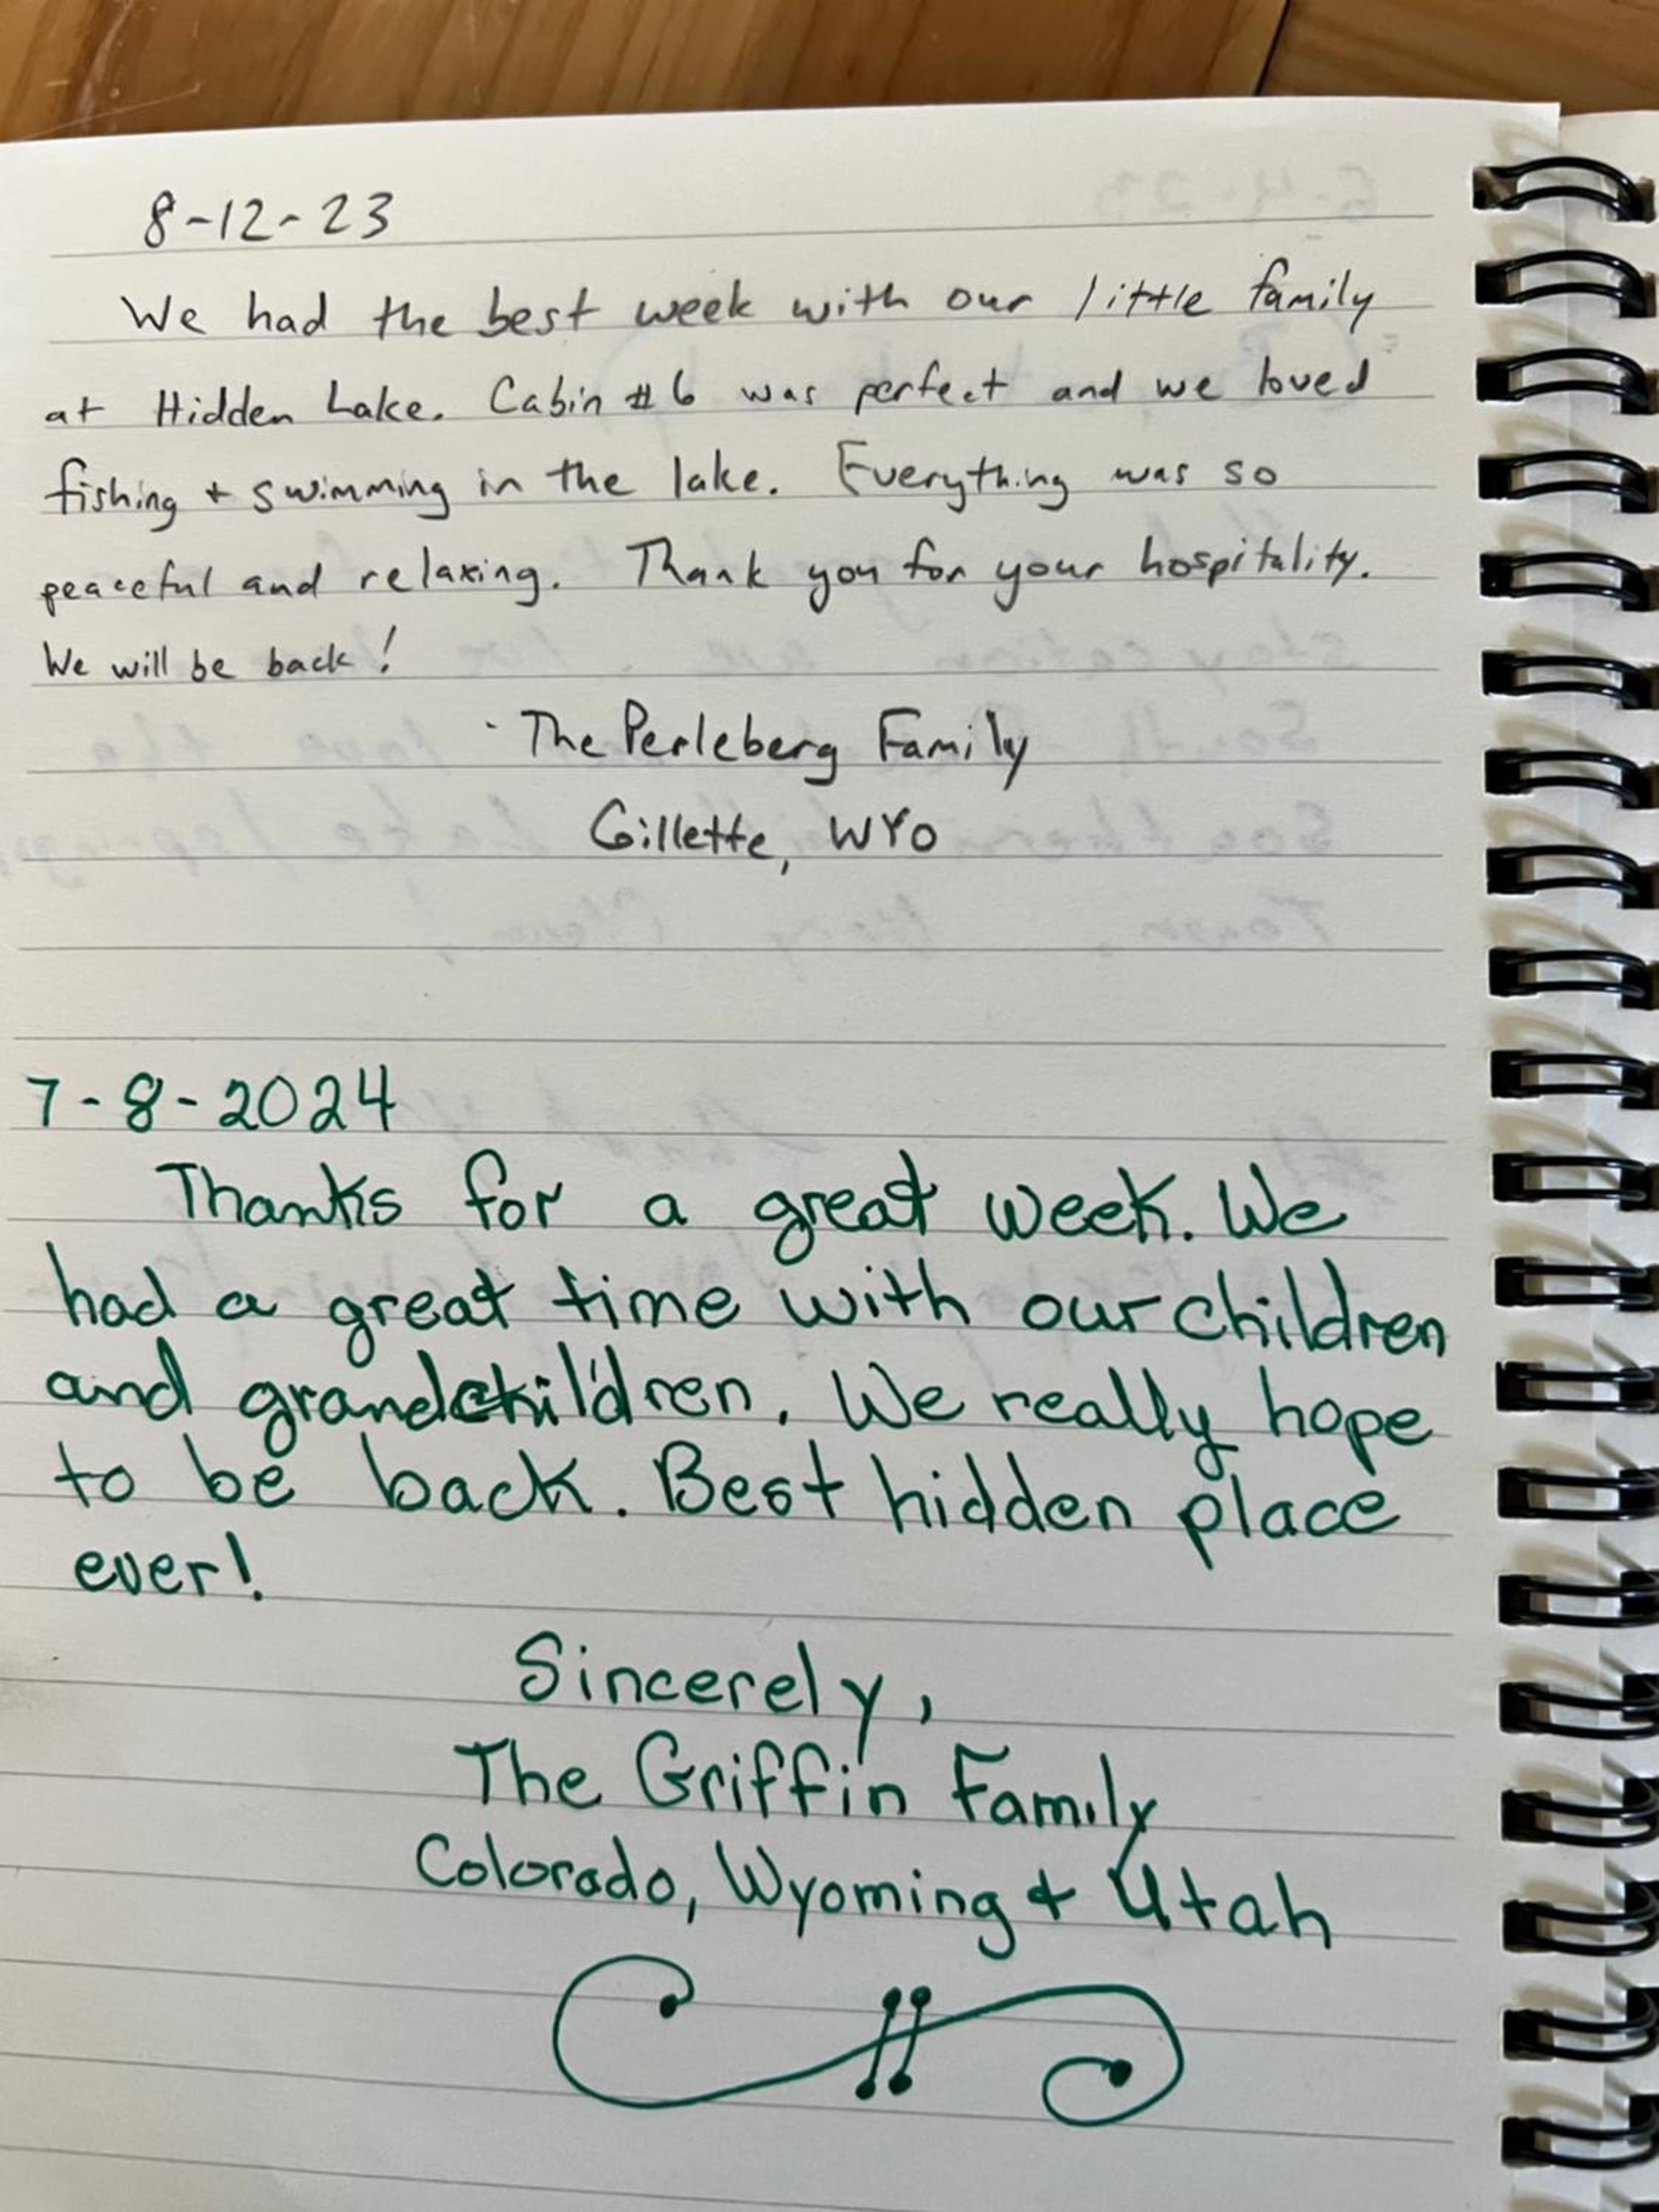 8-12-23
We had the best week with our little family
at Hidden Lake. Cabin #6 was perfect and we loved
fishing + swimming in the lake. Everything was so
peaceful and relaxing. Thank you for your hospitality.
We will be back!
- The Perleberg Family
Gillette, WYO
7-8-2024
Thanks for a great week. We
had a great time with our children
and grandchildren. We really hope
to be back. Best hidden place
ever!
Sincerely,
The Griffin Family
Colorado, Wyoming + Utah